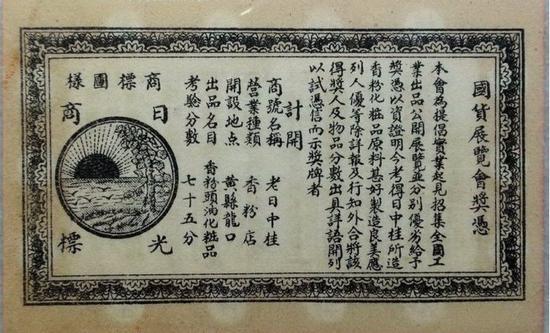 國貨展覽會獎憑
本會為提倡實業起見招集全國工
業出品公開展覽並分別優劣給予
獎憑以資證明今考得日中桂所造
香粉化粧品原料甚好製造良美應
列人優等除詳報及行知外合將該
得獎人及物品分數出具評語開列
以試憑信而示獎牌者
計開
商號名稱 老日中桂
營業種類 香粉店
開設地点 黃縣龍口
出品名目 香粉頭油化粧品
考驗分數 七十五分
商標圖樣
日光
商標